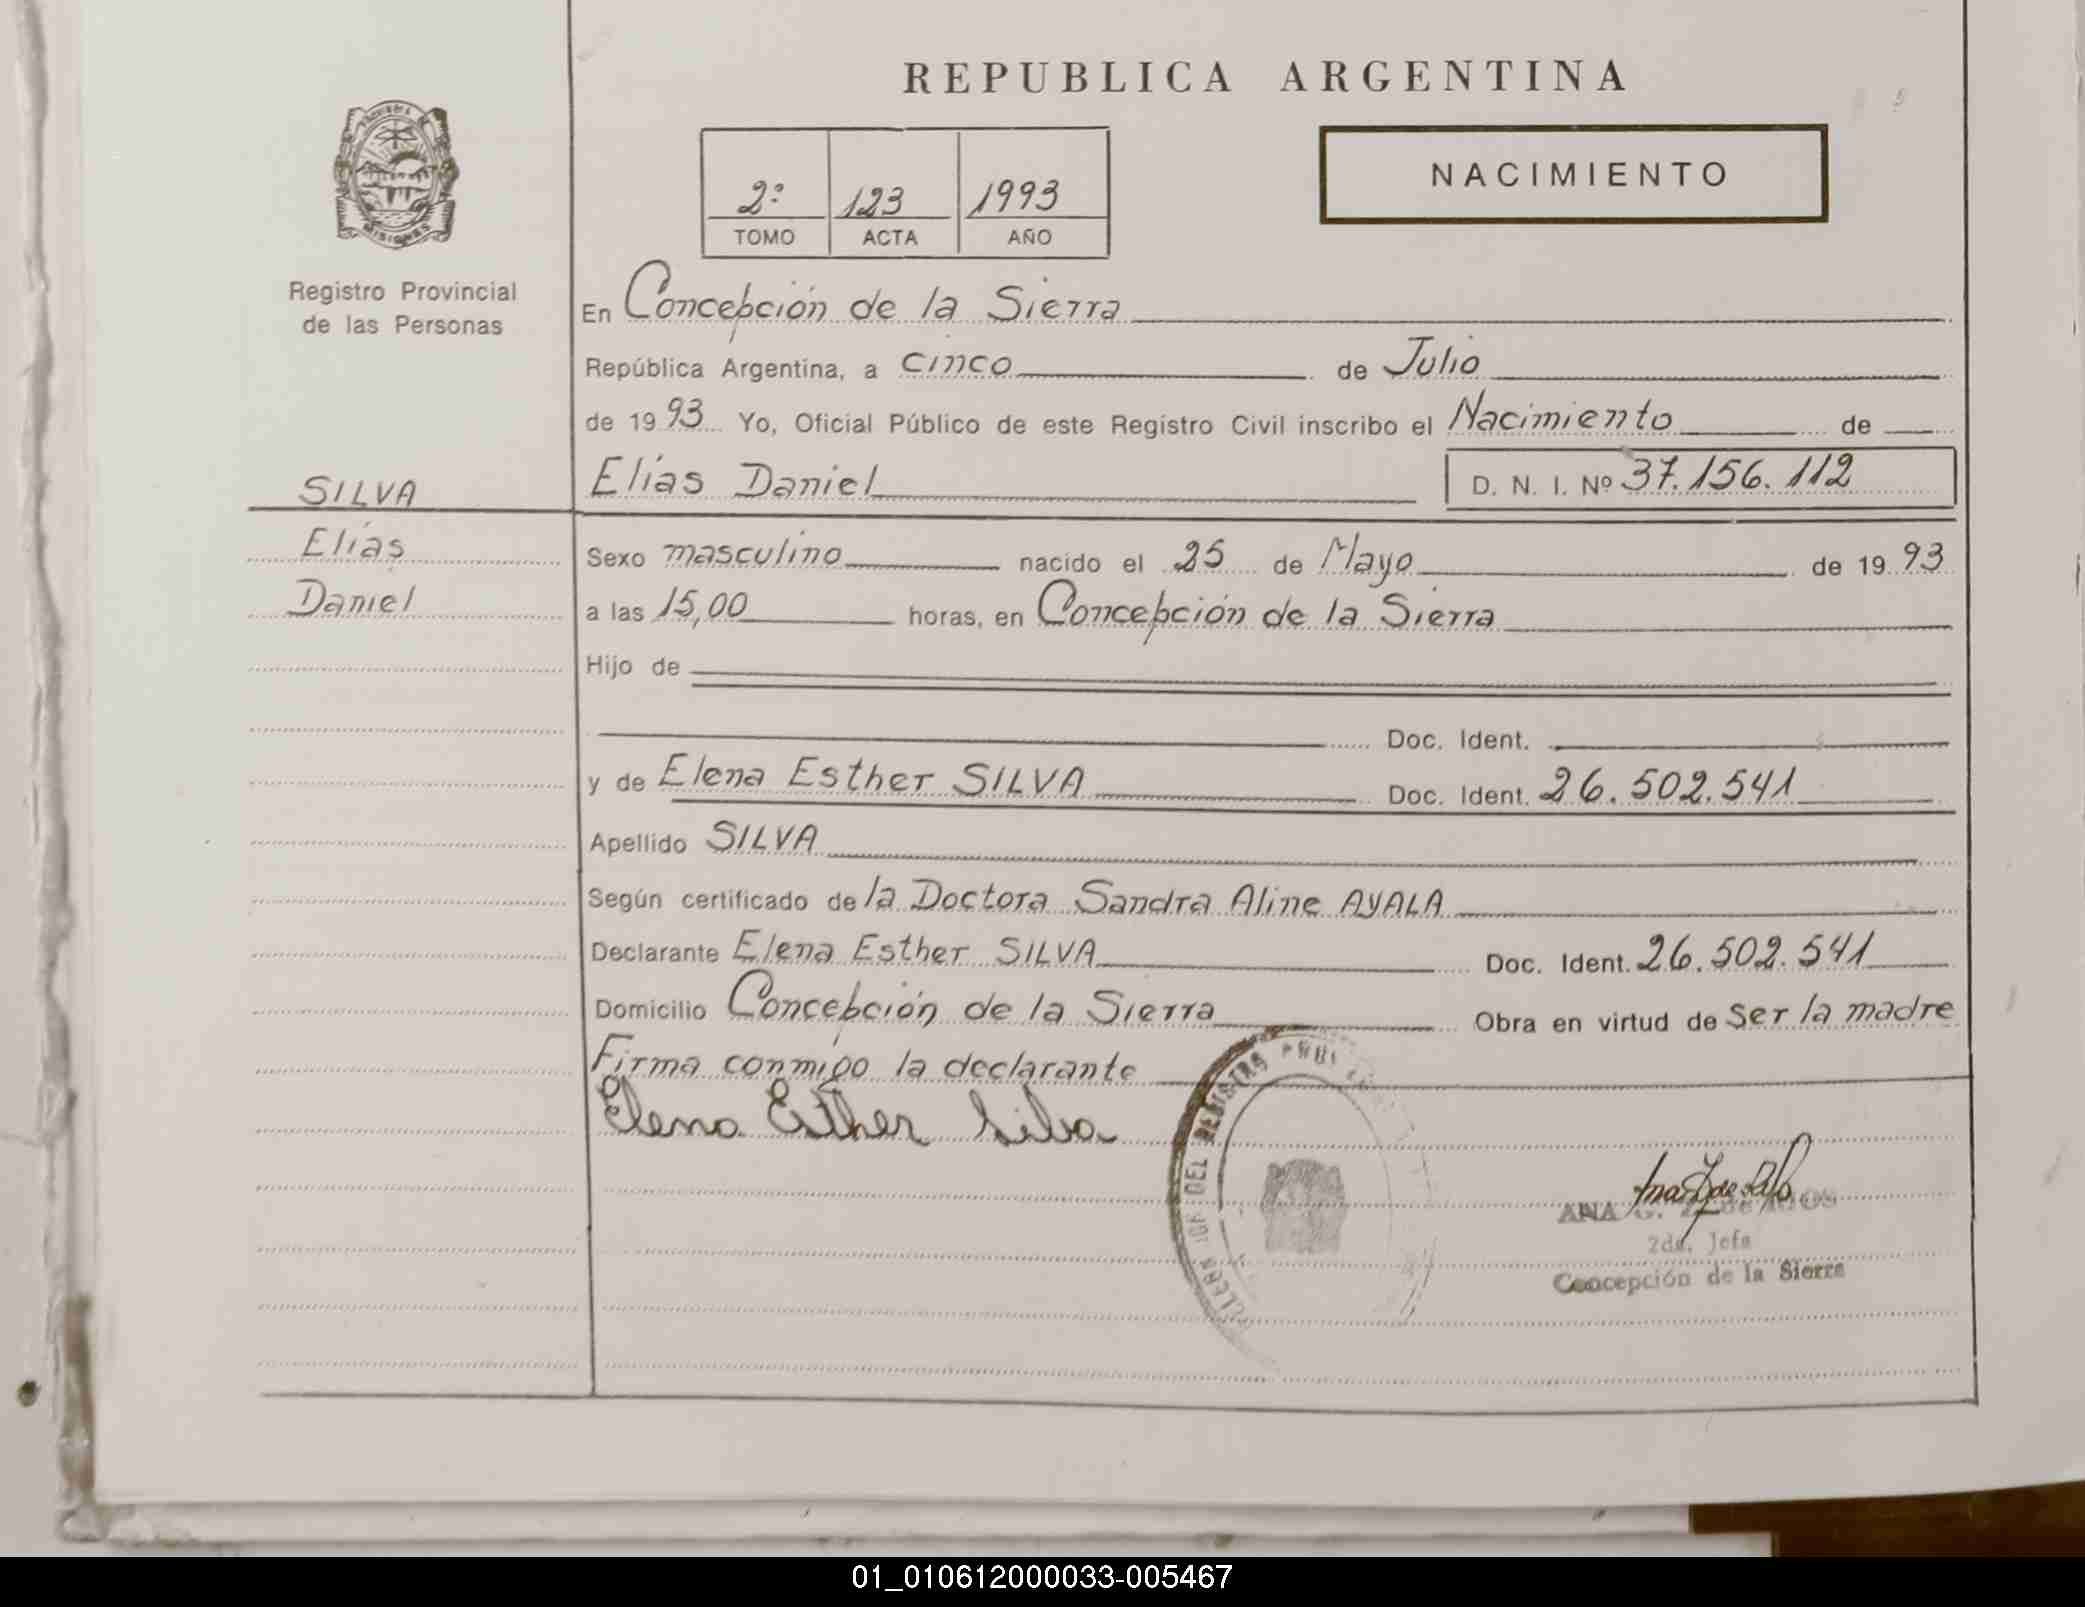 REPUBLICA ARGENTINA
PROVINCIA
MISIONES
Registro Provincial
de las Personas
2º 123 1993
TOMO ACTA AÑO
NACIMIENTO
En Concepción de la Sierra
República Argentina, a cinco de Julio
de 1993 Yo, Oficial Público de este Registro Civil inscribo el Nacimiento de
SILVA
Elías Daniel D. N. I. Nº 37.156.112
Elías
Sexo masculino nacido el 25 de Mayo de 1993
Daniel
a las 15,00 horas, en Concepción de la Sierra
Hijo de
Doc. Ident.
y de Elena Esther SILVA Doc. Ident. 26.502.541
Apellido SILVA
Según certificado de la Doctora Sandra Aline AYALA
Declarante Elena Esther SILVA Doc. Ident. 26.502.541
Domicilio Concepción de la Sierra Obra en virtud de Ser la madre
Firma conmigo la declarante
Elena Esther Silva
DEL REGISTRO
ANA G.
2da. Jefa
Concepción de la Sierra
01_010612000033-005467